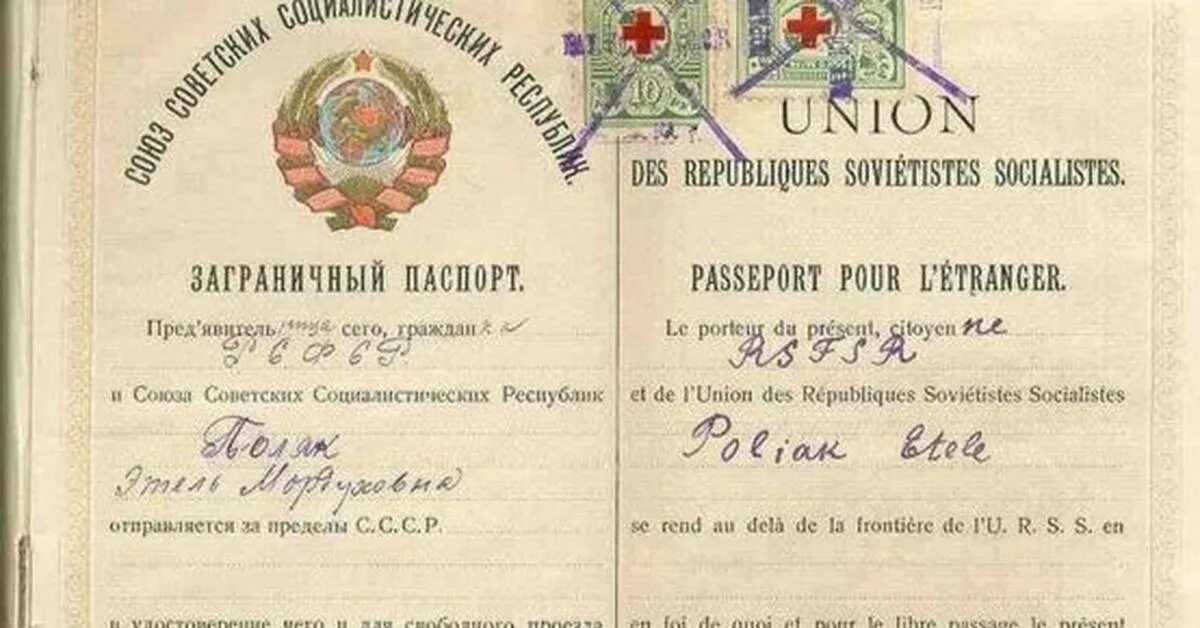 СОЮЗ СОВЕТСКИХ СОЦИАЛИСТИЧЕСКИХ РЕСПУБЛИК.
ЗАГРАНИЧНЫЙ ПАСПОРТ.
Пред'явительница сего, гражданка
РСФСР
и Союза Советских Социалистических Республик
Поляк
Этель Мордуховна
отправляется за пределы С.С.С.Р.
в удостоверение чего и для свободного проезда
10
UNION
DES REPUBLIQUES SOVIÉTISTES SOCIALISTES.
PASSEPORT POUR L'ÉTRANGER.
Le porteur du présent, citoyenne
RSFSR
et de l'Union des Républiques Soviétistes Socialistes
Poliak Etele
se rend au delà de la frontière de l'U. R. S. S. en
en foi de quoi et pour le libre passage le présent